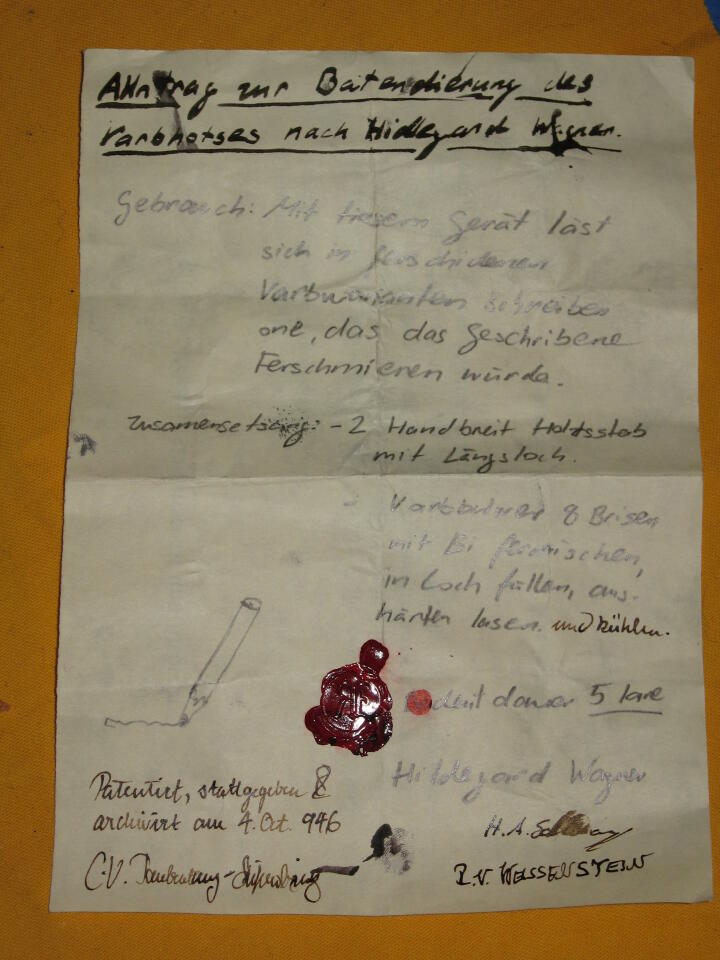 AHntrag zur Batendierung des
Varbhotses nach Hidlegard Wagner.
Gebrauch: Mit tiesem Gerät läst
sich in ferschidenen
Varbwarianten schreiben
one, das das Geschribene
Ferschmieren würda.
Zusamensetsung: - 2 Handbreit Holtsstab
mit Längsloch.
- Varbbulwer 8 Brisen
mit Bi fermischen,
in Loch füllen, aus-
härten lasen. und kühlen.
dauer 5 Iare
Hildegard Wagner
Patentiert, stattgegeben &
archiviert am 4. Oct. 946
H.A.
C.V.
I.V. WEISSENSTEIN